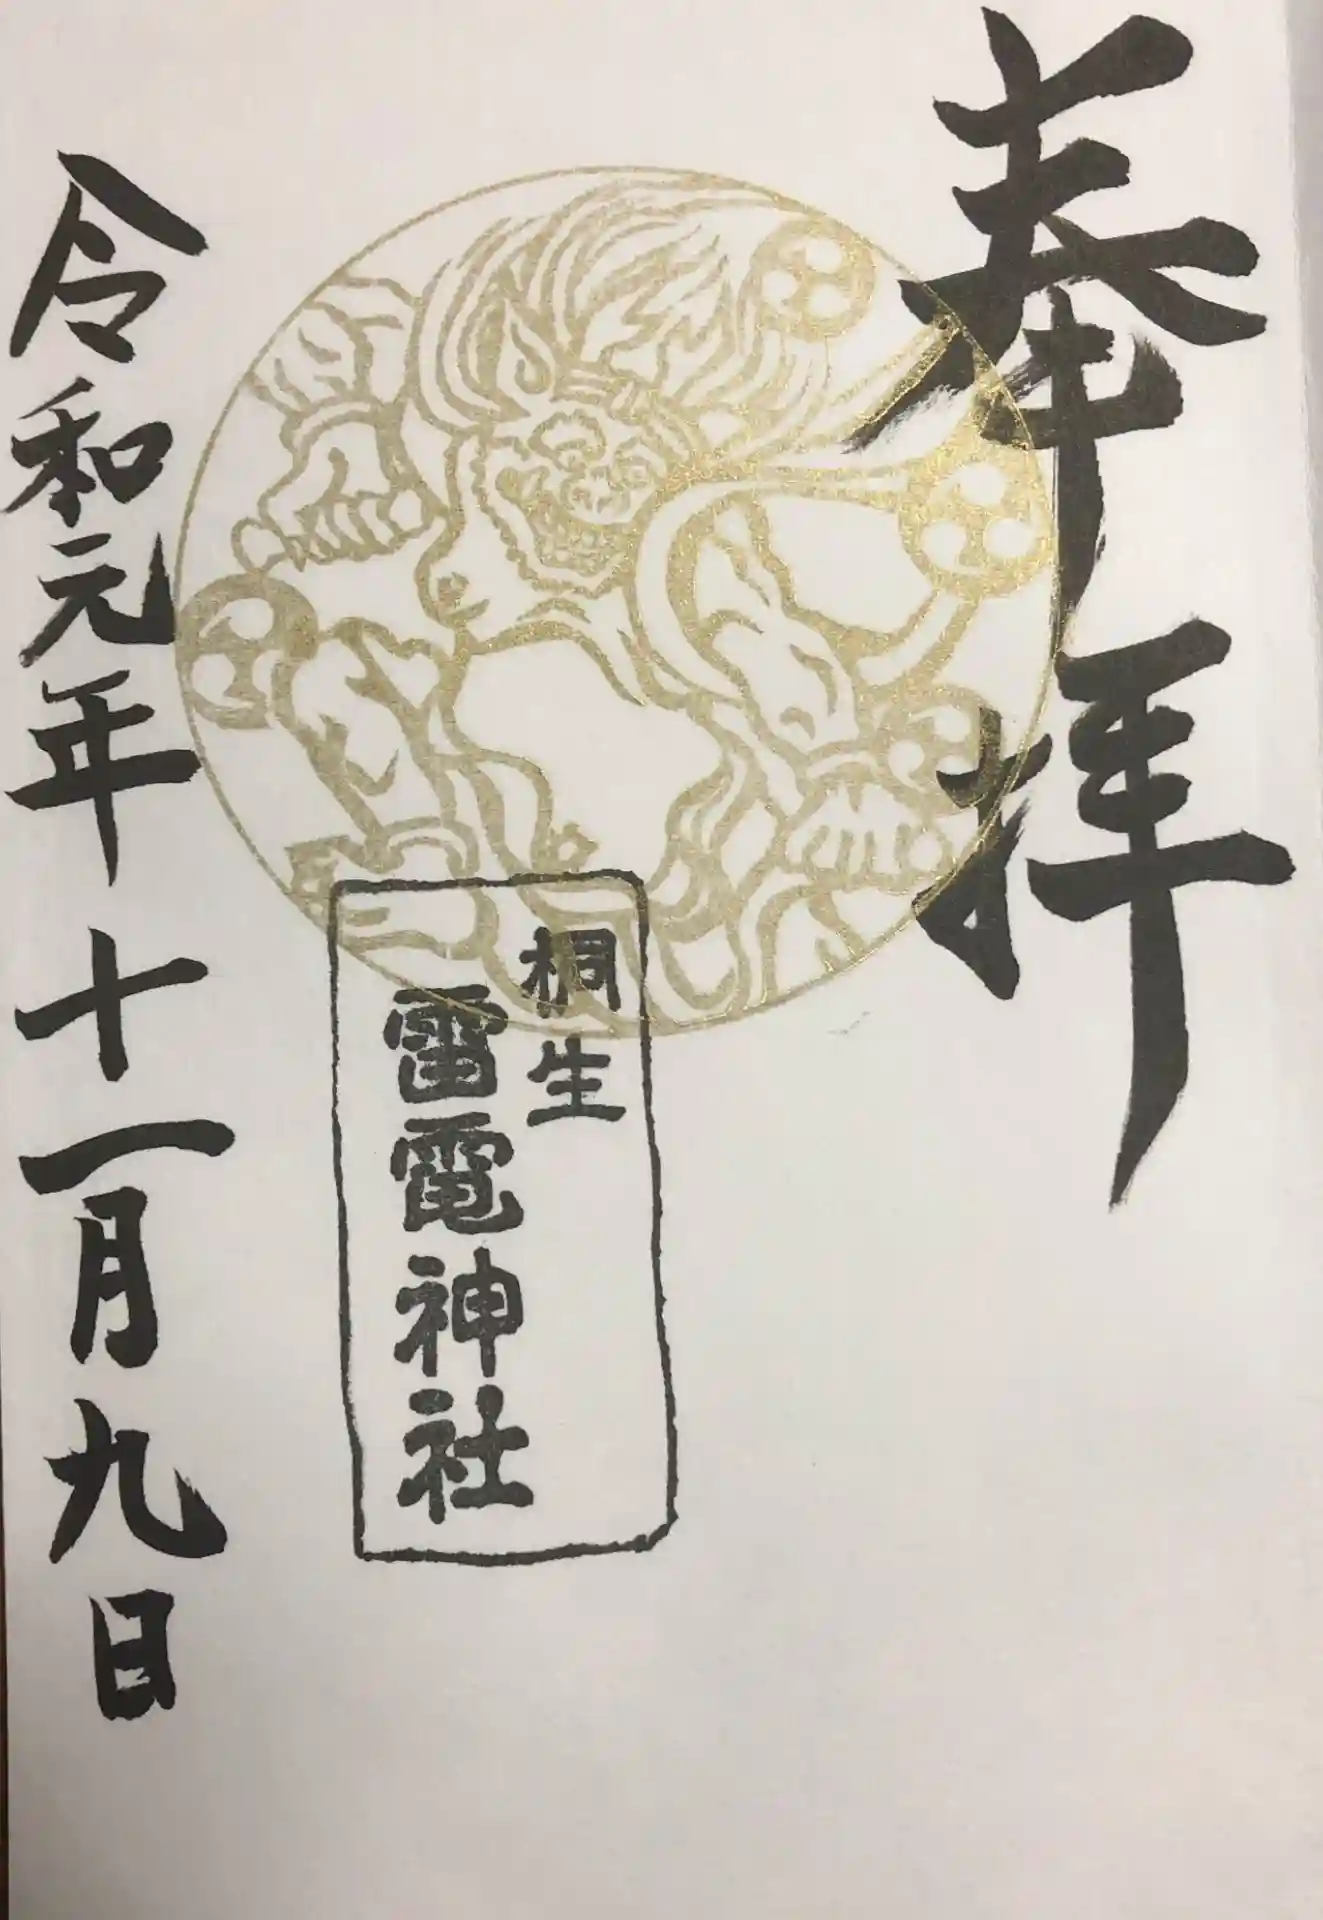 奉拝
桐生
雷電神社
令和元年十一月九日